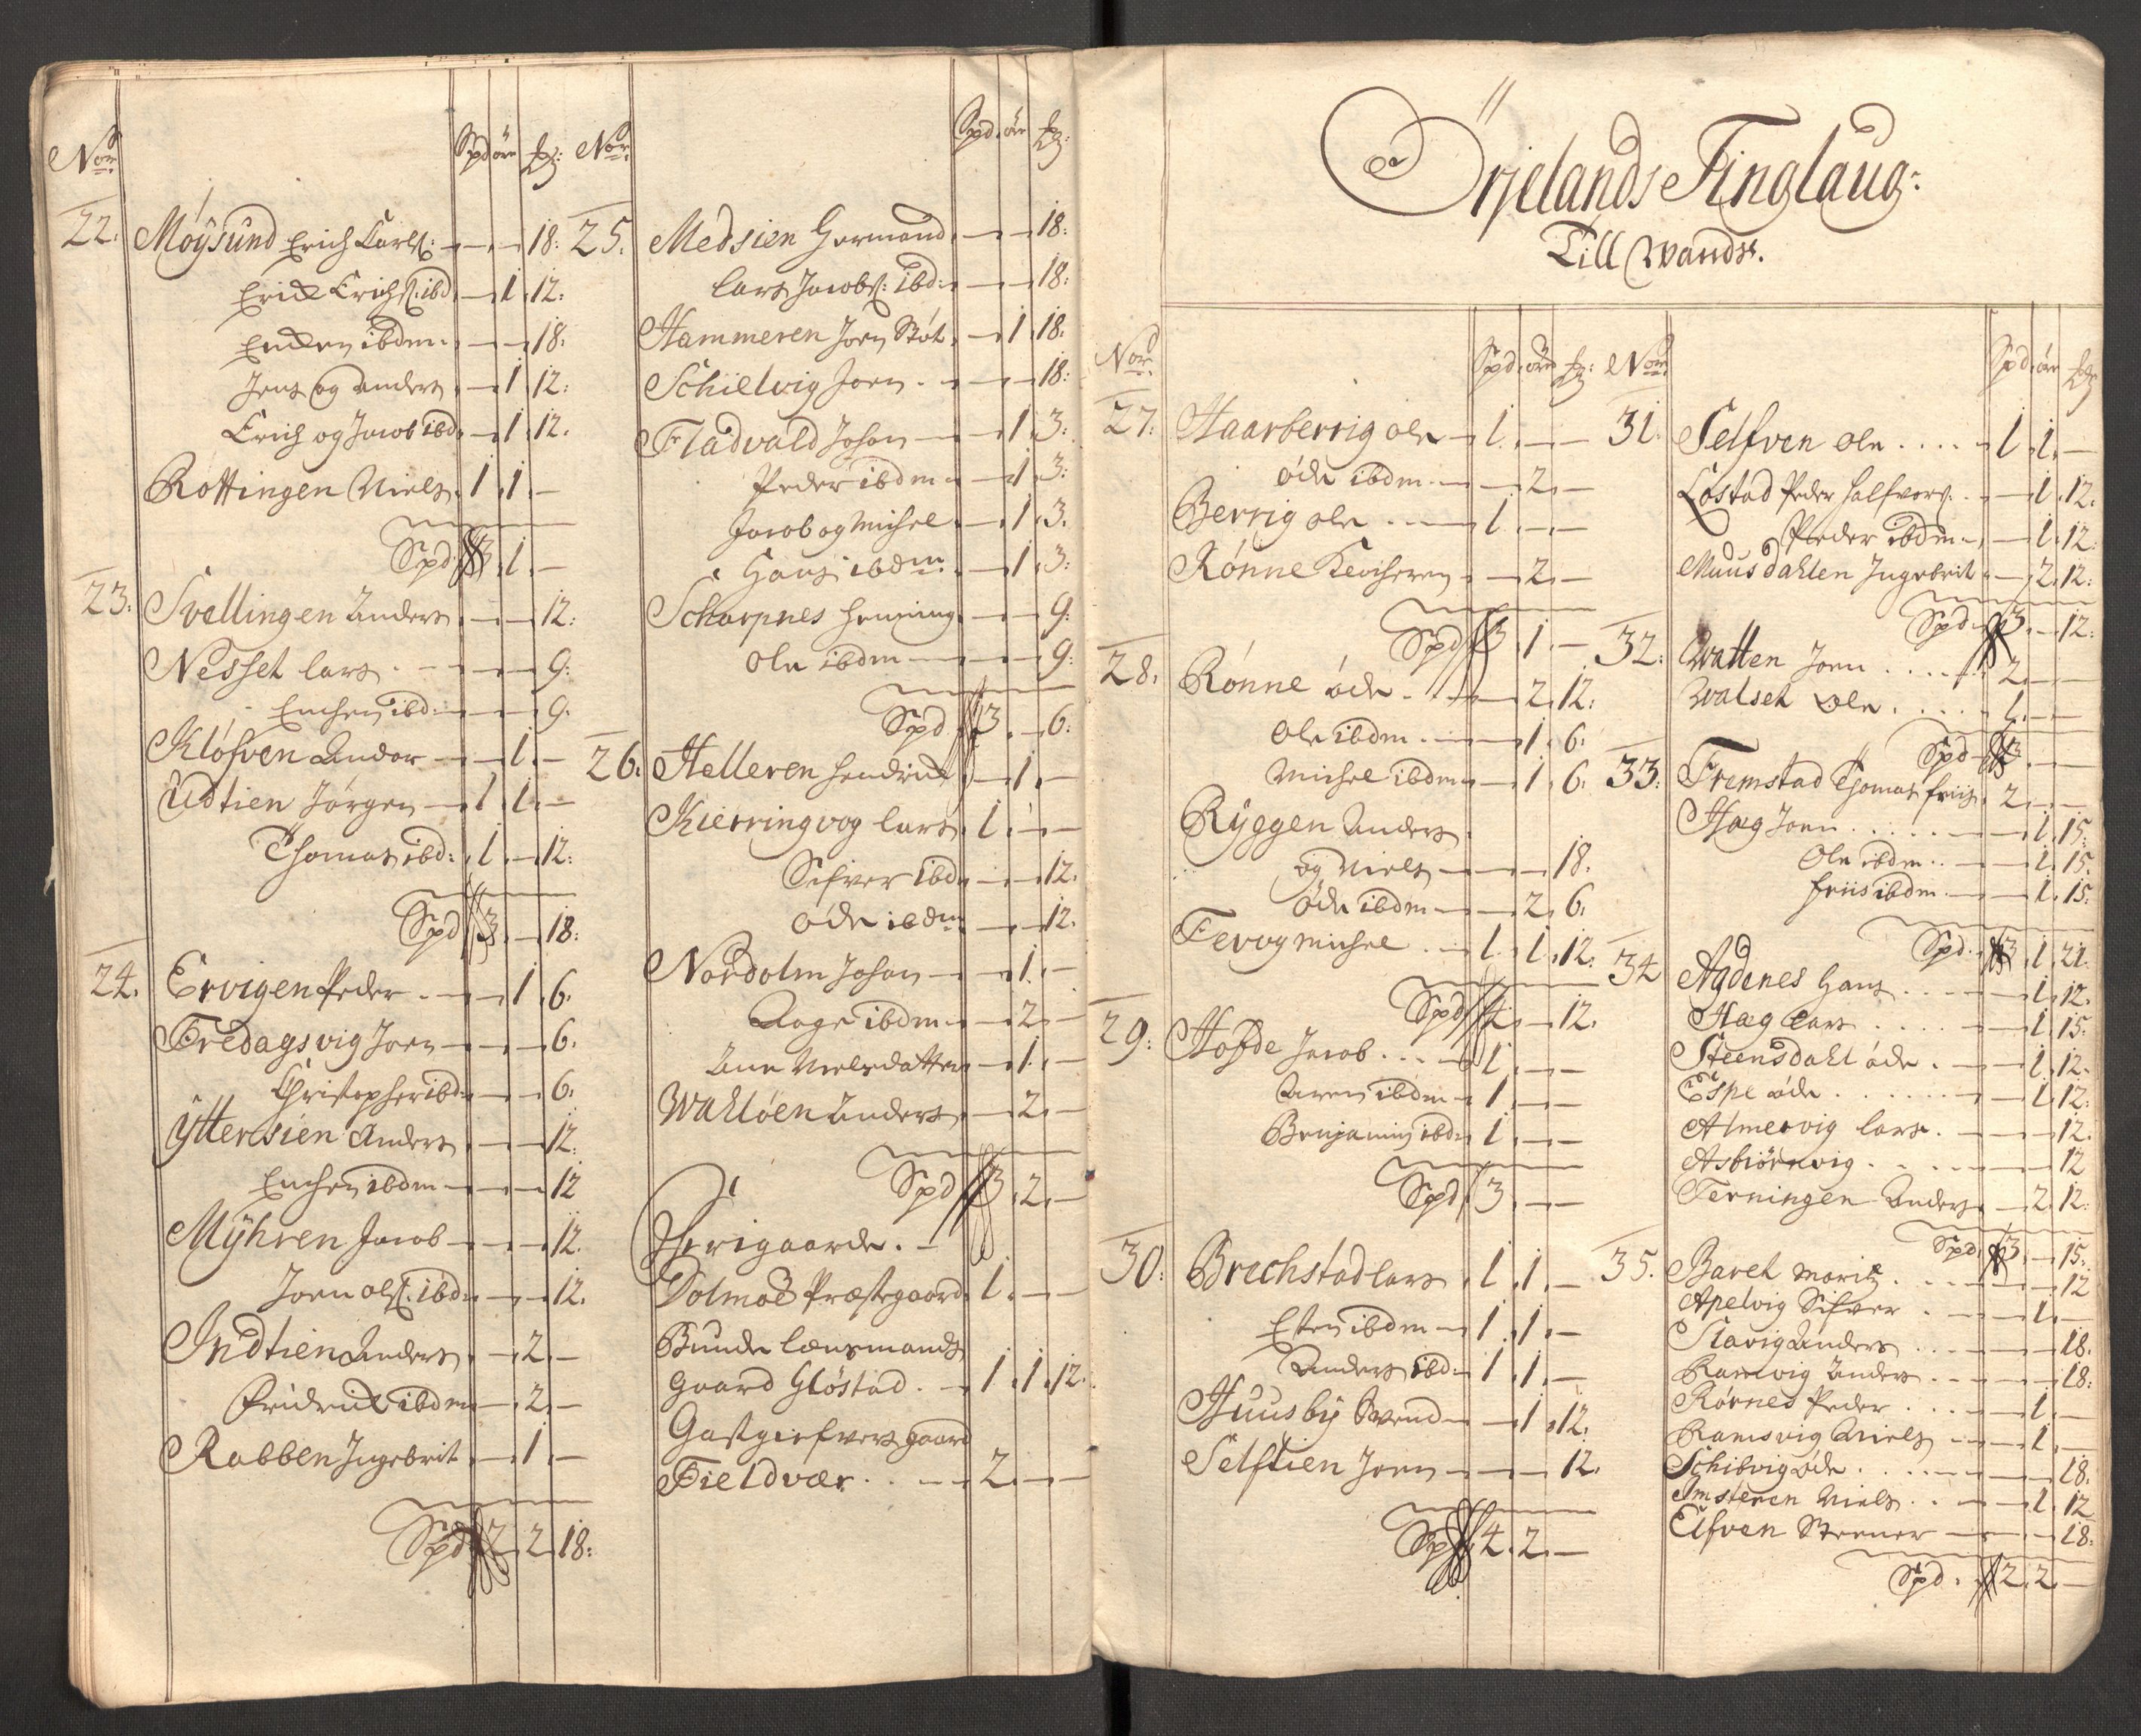 Nor. Spd ör
22. Möysund Erich Carls: 18:
Erich Erichs: ibd 1 12:
Enchen ibdm. 18:
Jens og Anders 1 12:
Erich og Jacob ibd 1 12.
Rottingen Niels 1 1
Spd 3 1
23: Svellingen Anders 12:
Nesset lars 9:
Enchen ibd: 9.
Klöfven Andor 1
Udtien Jörgen 1 1
Thomas ibd: 1 12:
Spd 3 18:
24. Ervigen Peder 1 6.
Fredagsvig Joen 6.
Christopher ibd: 6.
Ytteresien Anders 12:
Enchen ibdm 12
Myhren Jacob 12.
Joen ols: ibd: 12.
Indtien Anders 2
Fridrich ibdm 2
Rabben Ingebrit 1
Spd 2 2 18:
Nor. Spd. ör
25. Medsien Gormand 18:
lars Jacobs: ibd: 18:
Hammeren Joen 1 18:
Schielvig Joen 18:
Fladvald Johan 1 3:
Peder ibdm 1 3:
Jacob og Michel 1 3.
Hans ibdm. 1 3:
Scharpnes Henning 9:
Ole ibdm 9:
Spd 3 6:
26. Helleren Hendrich 1
Kierringvog lars 1
Sifver ibd: 12.
öde ibdm 12.
Nordolm Johan 1
Aage ibdm 2
Ane Nielsdatter 1
Wahlöen Anders 2
Spd 3 2
Frigaarde.
Dolmöe Præstegaard 1
Bunde lænsmands
gaard Glöstad 1 1 12.
Gastgiefvers gaard
Fieldvær 2
Örjelands Tinglaug:
Till Wands.
Nor. Spd. öre
27. Haarberrig ole 1
öde ibdm 2
Berrig ole 1
Rönne 2
Spd 3 1
28. Rönne öde 2 12:
Ole ibdm 1 6:
Michel ibdm 1 6.
Ryggen Anders
og Niels 18.
öde ibdm 2 6.
Fevog Michel 1 1 12.
Spd 2 12.
29: Hofde Jacob 1
Aren ibdm 1
Benjamin ibd: 1
Spd 3
30: Brechstad lars 1 1
Esten ibdm 1 1
Anders ibd: 1 1
Huusby Svend 1 12.
Selftien Joen 12.
Spd 4 2
Nor. Spd. öre
31. Selfven ole 1 1
Lostad Peder Halfvors: 1 12.
Peder ibdm 1 12:
Muusdahlen Ingebrit 2 12:
Spd 3 12:
32: Watten Joen 2
Walset Ole 1
Spd 3
33: Fremstad Thomas friis 2
Hag Joen 1 15:
Ole ibdm 1 15.
friis ibdm 1 15.
Spd 3 1 21.
34 Agdenes Hans 1 12.
Hag Lars 1 15.
Steensdahl öde 1 12.
Espe öde 1 12:
Almervig lars 12.
Asbiörnvig 12
Terningen Anders 2 12:
Spd 3 15.
35. Baret Moritz 12
Apelvig Sifver 1
Slavig Anders 18.
Ramvig Anders 18:
Rörnes Peder 1
Ramsvig Niels 1
Schibvig öde 18.
Imsteren Niels 1 12
Elfven 18:
Spd. 2 2